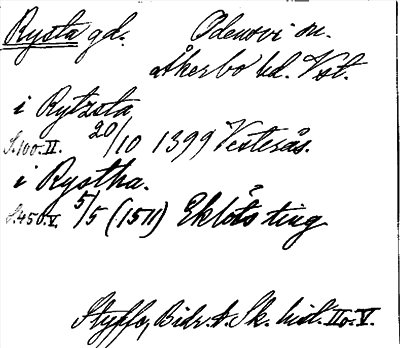 Rysta gd. Odensvi sn.
Åkerbo hd. Vst.
i Rytzsta
S.100.II. 20/10 1399 Vesterås.
i Rystha.
S.450.V. 5/5 (1511) Eklöts ting
Styffe, Bidr. t. Sk. hist. II o. V.